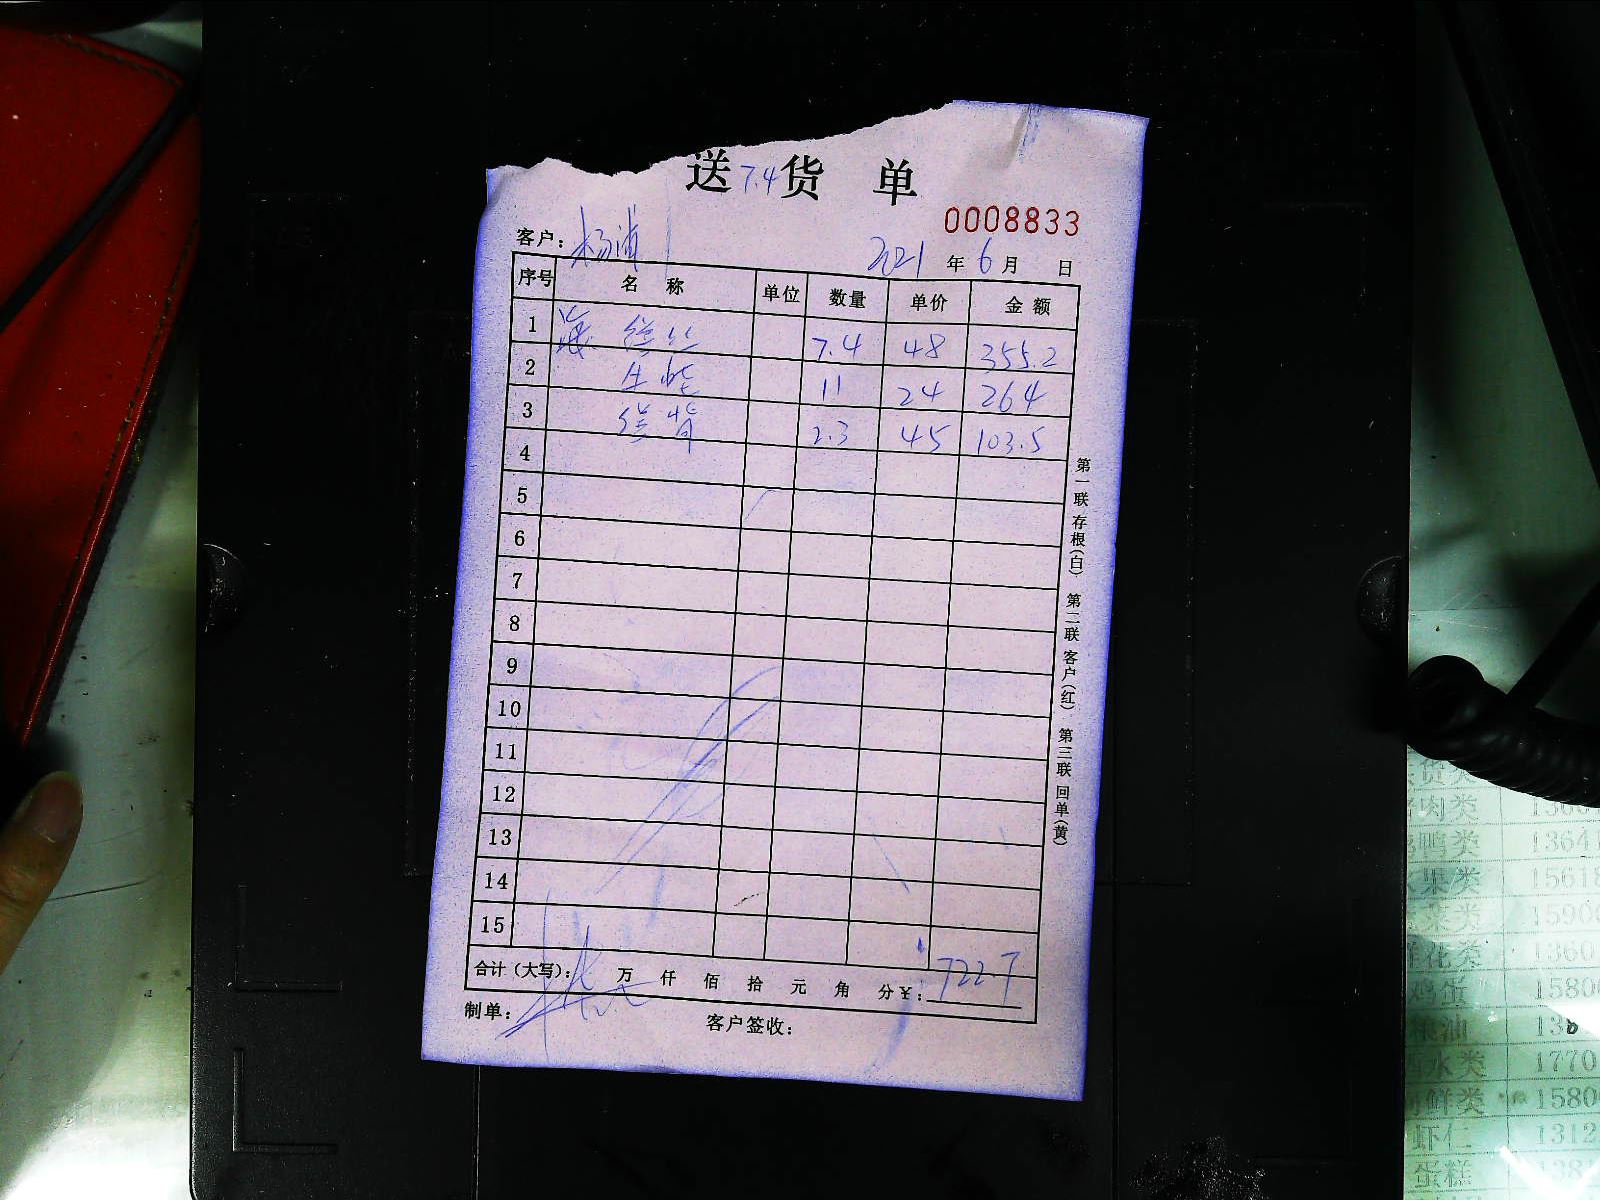 送 7.4 货 单
0008833
客户: 杨浦 2021 年 6 月 日
序号 名 称 单位 数量 单价 金 额
1 7.4 48 355.2
2 11 24 264
3 2.3 45 103.5
4
5
6
7
8
9
10
11
12
13
14
15
合计(大写): 万 仟 佰 拾 元 角 分 ¥: 722.7
制单: 客户签收:
第一联 存根(白) 第二联 客户(红) 第三联 回单(黄)
肉类
鸭类 1364
果类 1561
菜类 1590
花类 1360
鸡蛋 1580
油 13
水类 1770
鲜类 1580
虾仁 1312
蛋糕 138